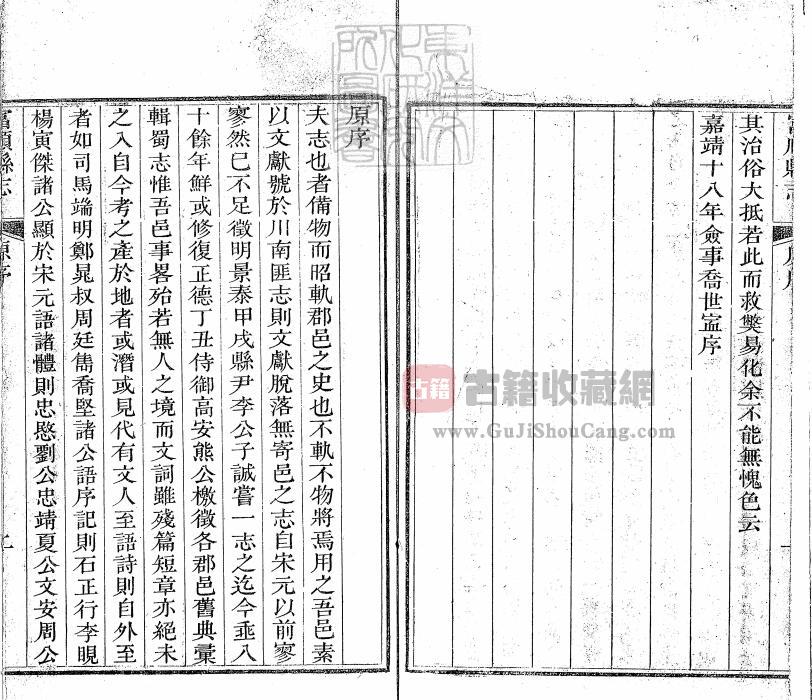 其治俗大抵若此而救獘易化余不能無愧色云
嘉靖十八年僉事喬世寍序
原序
夫志也者備物而昭軌郡邑之史也不軌不物將焉用之吾邑素
以文獻號於川南匪志則文獻脫落無寄邑之志自宋元以前寥
寥然已不足徵明景泰甲戌縣尹李公子誠嘗一志之迄今垂八
十餘年鮮或修復正德丁丑侍御高安熊公檄徵各郡邑舊典彙
輯蜀志惟吾邑事畧殆若無人之境而文詞雖殘篇短章亦絕未
之入自今考之產於地者或潛或見代有文人至語詩則自外至
者如司馬端明鄭晁叔周廷雋喬堅諸公語序記則石正行李晛
楊寅傑諸公顯於宋元語諸體則忠愍劉公忠靖夏公文安周公
富順縣志
原序
古籍
古籍收藏網
www.GuJiShouCang.com